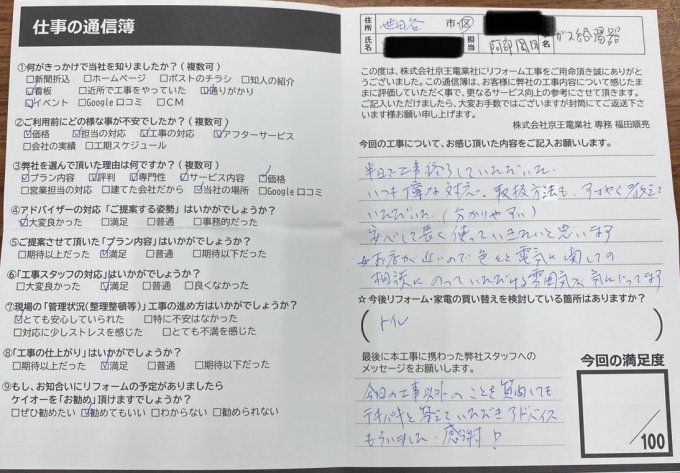 仕事の通信簿
①何がきっかけで当社を知りましたか？（複数可）
□新聞折込 □ホームページ □ポストのチラシ □知人の紹介
☑看板 □近所で工事をやっていた ☑通りがかり
☑イベント □Google口コミ □CM
②ご利用前にどの様な事が不安でしたか？（複数可）
☑価格 ☑担当の対応 ☑工事の対応 ☑アフターサービス
□会社の実績 □工期スケジュール
③弊社を選んで頂いた理由は何ですか？（複数可）
☑プラン内容 ☑評判 ☑専門性 ☑サービス内容 ☑価格
□営業担当の対応 □建てた会社だから ☑当社の場所 □Google口コミ
④アドバイザーの対応「ご提案する姿勢」はいかがでしょうか？
☑大変良かった □満足 □普通 □事務的だった
⑤ご提案させて頂いた「プラン内容」はいかがでしょうか？
□期待以上だった ☑満足 □普通 □期待以下だった
⑥「工事スタッフの対応」はいかがでしょうか？
□大変良かった ☑満足 □普通 □良くなかった
⑦現場の「管理状況（整理整頓等）」工事の進め方はいかがでしょうか？
☑とても安心していられた □特に不安はなかった
□対応に少しストレスを感じた □とても不満を感じた
⑧「工事の仕上がり」はいかがでしょうか？
□期待以上だった ☑満足 □普通 □期待以下だった
⑨もし、お知合いにリフォームの予定がありましたら
ケイオーを「お勧め」頂けますでしょうか？
□ぜひ勧めたい ☑勧めてもいい □わからない □勧められない
住所 世田谷 市・区
氏名 担当 阿部 名 ガス給湯器
この度は、株式会社京王電業社にリフォーム工事をご用命頂き誠にありがと
うございました。この通信簿は、お客様に弊社の工事内容について感じたま
まに評価していただく事で、更なるサービス向上の参考にさせて頂きます。
ご記入いただけましたら、大変お手数ではございますが封筒にてご返送下さ
います様お願い申し上げます。
株式会社京王電業社 専務 福田順亮
今回の工事について、お感じ頂いた内容をご記入お願いします。
半日で工事終了していただいた。
いつも丁寧な対応で、取扱方法も、すばやく教えて
いただいた。（分かりやすい）
安心して長く使っていきたいと思います
お店が近いので色々と電気に関しての
相談にのっていただける雰囲気が気に入ってます
☆今後リフォーム・家電の買い替えを検討している箇所はありますか？
（トイレ）
最後に本工事に携わった弊社スタッフへの
メッセージをお願いします。
今回の工事以外のことを質問しても
テキパキと答えていただきアドバイス
もらいました。感謝！
今回の満足度
/100